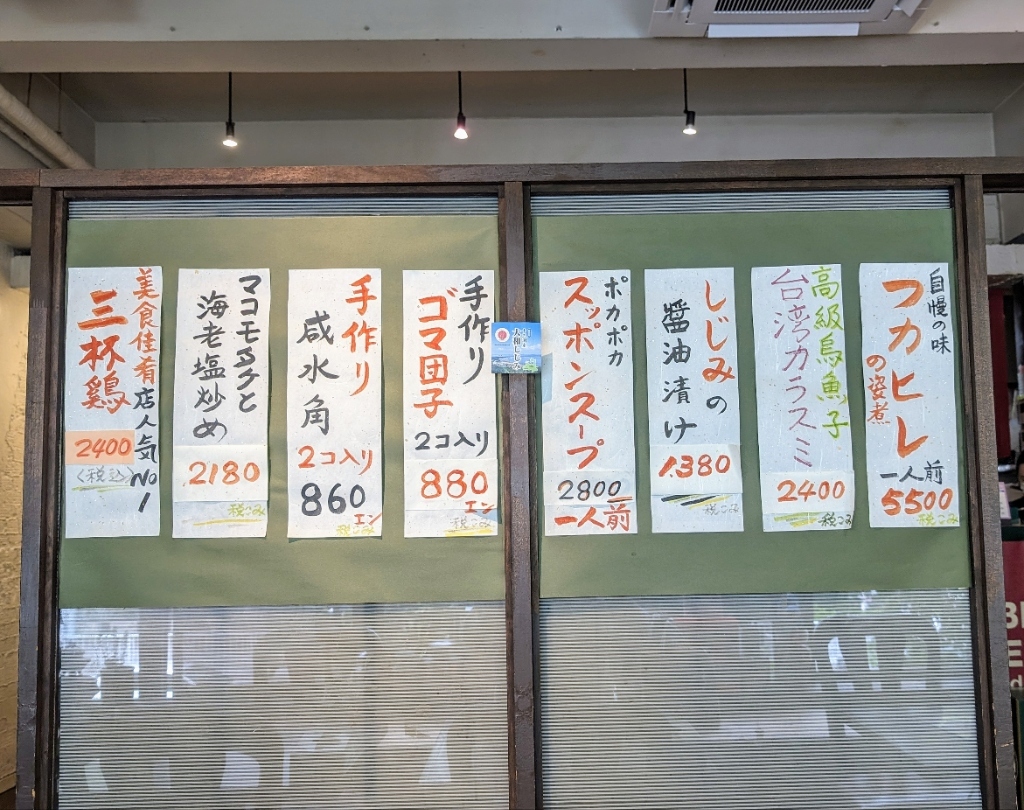 自慢の味
フカヒレ
の姿煮
一人前
5500
税こみ
高級烏魚子
台湾カラスミ
2400
税こみ
しじみの
醤油漬け
1380
税こみ
ポカポカ
スッポンスープ
2800
一人前
大和しじみ
手作り
ゴマ団子
2コ入り
880
エン
税こみ
手作り
咸水角
2コ入り
860
エン
税こみ
マコモダケと
海老塩炒め
2180
税こみ
美食佳肴店人気No1
三杯鶏
2400
(税込)